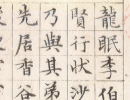 龍眠李伯
賢行狀沙
乃與其弟
先居香谷